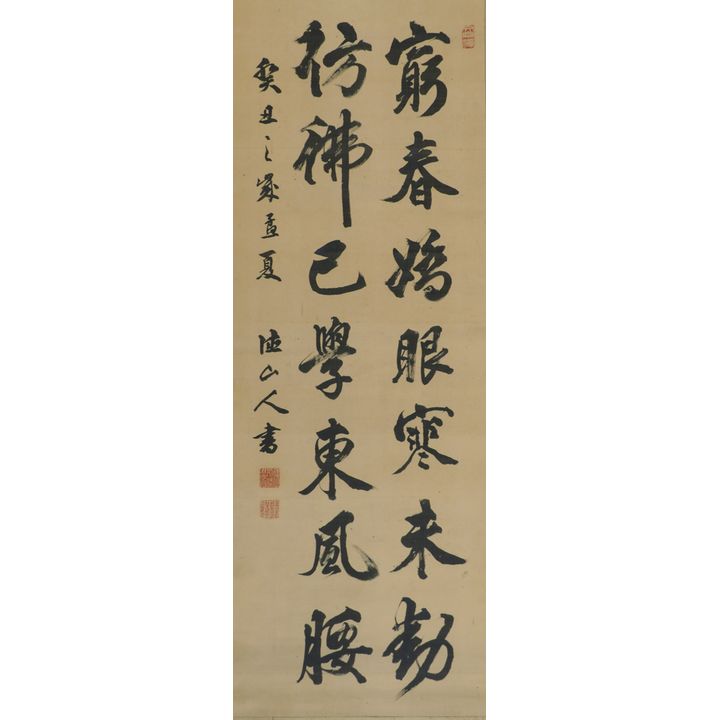 窮春嬌眼寒未動
彷彿已學東風腰
癸丑之歲孟夏
山人書